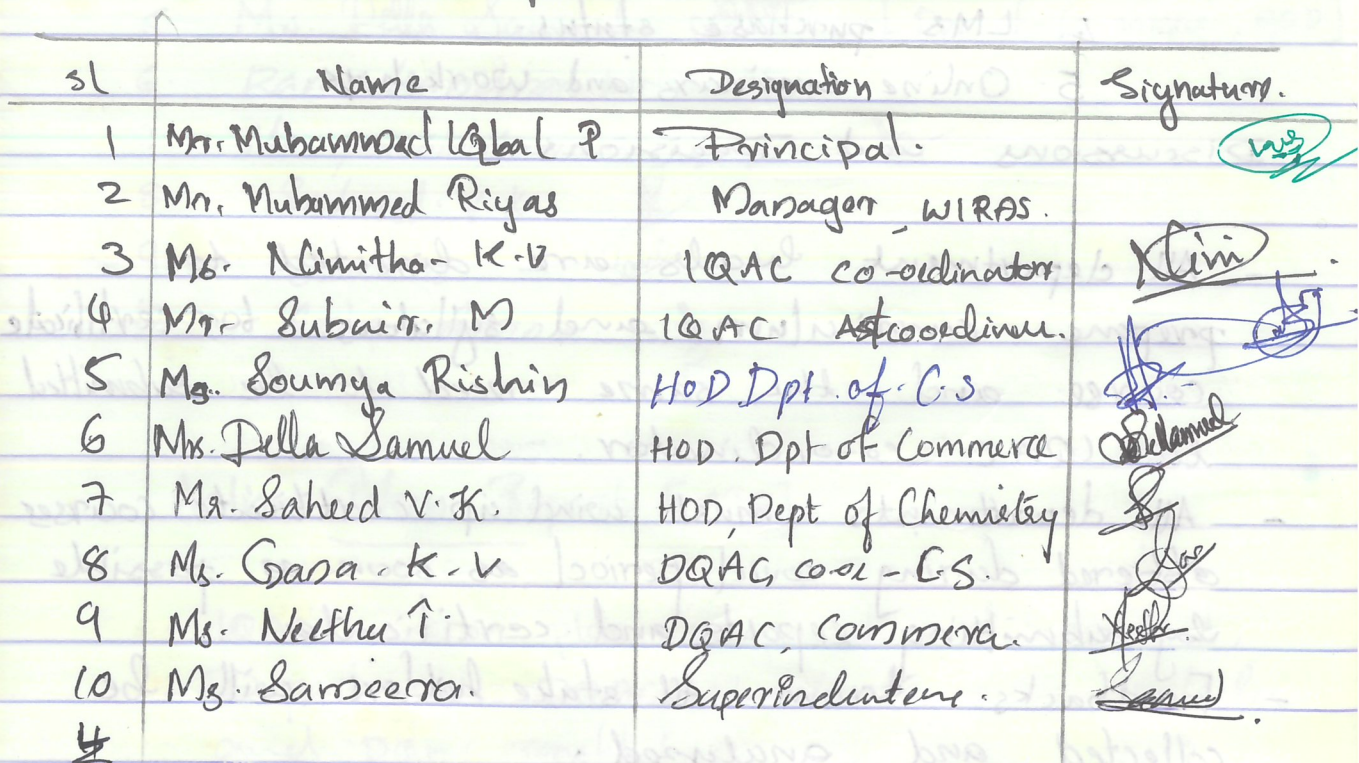 sl Name Designation Signature.
1 Mr. Muhammad IQbal P Principal.
2 Mr. Muhammed Riyas Manager, WIRAS.
3 Ms. Nimitha K.V IQAC co-ordinator Nimi
4 Mr. Subair. M IQAC Ast coordinen.
5 Ms. Soumya Rishin HOD Dpt. of. C.S
6 Mrs. Della Samuel HOD, Dpt of Commerce
7 Mr. Saheed V.K. HOD, Dept of Chemistry
8 Ms. Gana. K.V DQAC, coor - C.S.
9 Ms. Neethu T. DQAC, Commerce. Neethu
10 Ms. Sameera. Superindentent.